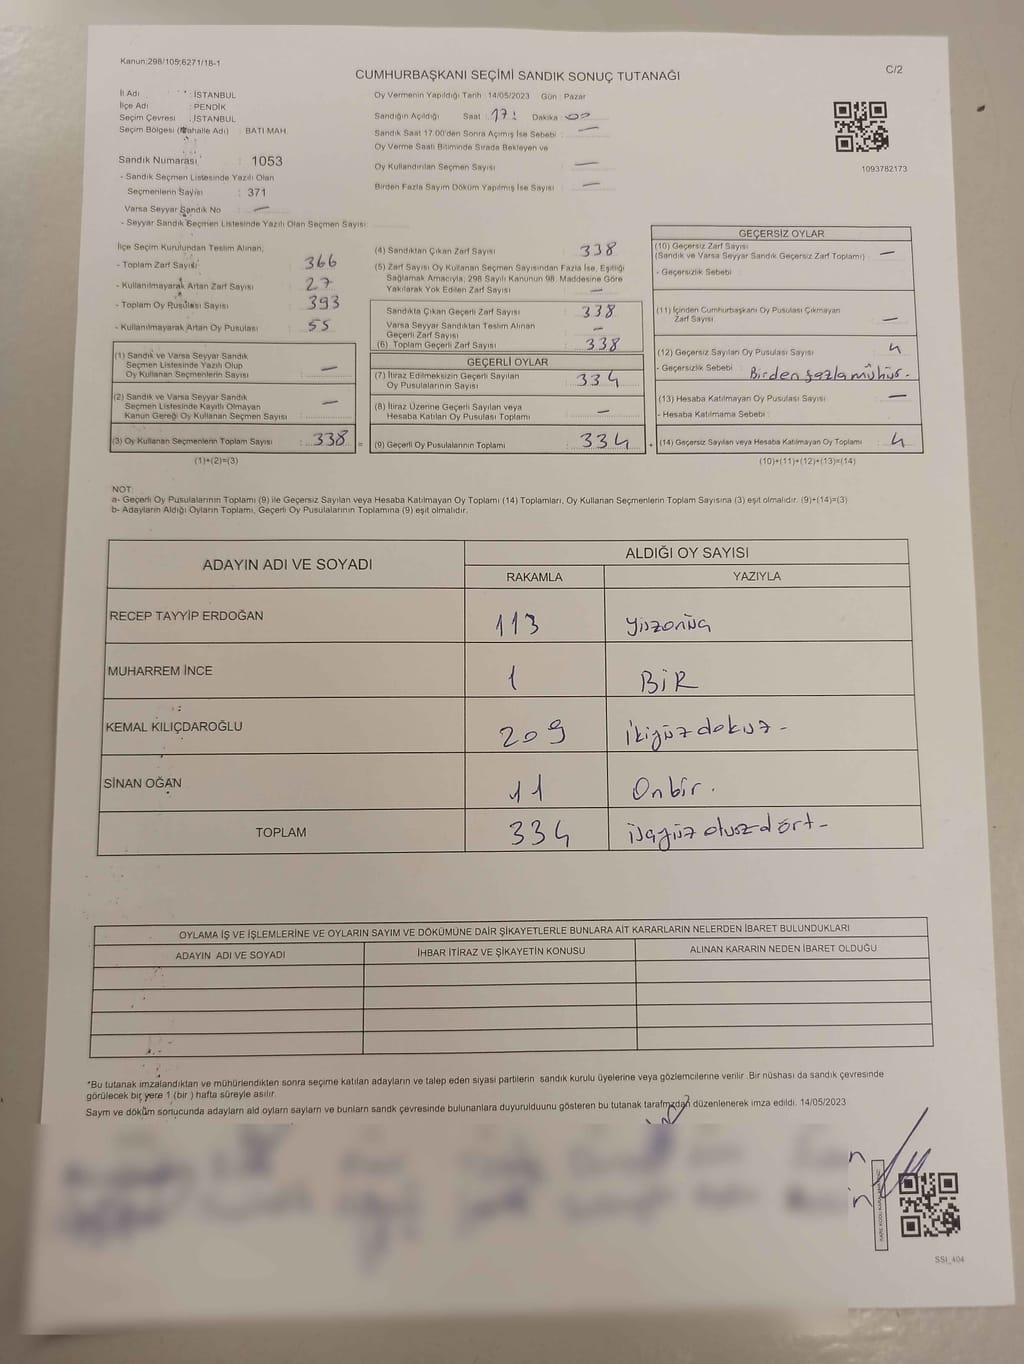 Kanun:298/105;6271/18-1
C/2
CUMHURBAŞKANI SEÇİMİ SANDIK SONUÇ TUTANAĞI
İl Adı : İSTANBUL
İlçe Adı : PENDİK
Seçim Çevresi : İSTANBUL
Seçim Bölgesi (Mahalle Adı) : BATI MAH.
Sandık Numarası : 1053
- Sandık Seçmen Listesinde Yazılı Olan
Seçmenlerin Sayısı : 371
Varsa Seyyar Sandık No : —
- Seyyar Sandık Seçmen Listesinde Yazılı Olan Seçmen Sayısı:
Oy Vermenin Yapıldığı Tarih : 14/05/2023 Gün : Pazar
Sandığın Açıldığı Saat : 17: Dakika : 00
Sandık Saat 17.00'den Sonra Açımış İse Sebebi : —
Oy Verme Saati Bitiminde Sırada Bekleyen ve
Oy Kullandırılan Seçmen Sayısı : —
Birden Fazla Sayım Döküm Yapılmış İse Sayısı : —
1093782173
İlçe Seçim Kurulundan Teslim Alınan;
- Toplam Zarf Sayısı : 366
- Kullanılmayarak Artan Zarf Sayısı : 27
- Toplam Oy Pusulası Sayısı : 393
- Kullanılmayarak Artan Oy Pusulası : 55
(1) Sandık ve Varsa Seyyar Sandık
Seçmen Listesinde Yazılı Olup
Oy Kullanan Seçmenlerin Sayısı : —
(2) Sandık ve Varsa Seyyar Sandık
Seçmen Listesinde Kayıtlı Olmayan
Kanun Gereği Oy Kullanan Seçmen Sayısı : —
(3) Oy Kullanan Seçmenlerin Toplam Sayısı : 338 =
(1)+(2)=(3)
(4) Sandıktan Çıkan Zarf Sayısı : 338
(5) Zarf Sayısı Oy Kullanan Seçmen Sayısından Fazla İse, Eşitliği
Sağlamak Amacıyla, 298 Sayılı Kanunun 98. Maddesine Göre
Yakılarak Yok Edilen Zarf Sayısı : —
Sandıkta Çıkan Geçerli Zarf Sayısı : 338
Varsa Seyyar Sandıktan Teslim Alınan
Geçerli Zarf Sayısı : —
(6) Toplam Geçerli Zarf Sayısı : 338
GEÇERLİ OYLAR
(7) İtiraz Edilmeksizin Geçerli Sayılan
Oy Pusulalarının Sayısı : 334
(8) İtiraz Üzerine Geçerli Sayılan veya
Hesaba Katılan Oy Pusulası Toplamı : —
(9) Geçerli Oy Pusulalarının Toplamı : 334 +
GEÇERSİZ OYLAR
(10) Geçersiz Zarf Sayısı
(Sandık ve Varsa Seyyar Sandık Geçersiz Zarf Toplamı) : —
- Geçersizlik Sebebi :
(11) İçinden Cumhurbaşkanı Oy Pusulası Çıkmayan
Zarf Sayısı : —
(12) Geçersiz Sayılan Oy Pusulası Sayısı : 4
- Geçersizlik Sebebi : Birden fazla mühür.
(13) Hesaba Katılmayan Oy Pusulası Sayısı : —
- Hesaba Katılmama Sebebi :
(14) Geçersiz Sayılan veya Hesaba Katılmayan Oy Toplamı : 4
(10)+(11)+(12)+(13)=(14)
NOT:
a- Geçerli Oy Pusulalarının Toplamı (9) ile Geçersiz Sayılan veya Hesaba Katılmayan Oy Toplamı (14) Toplamları, Oy Kullanan Seçmenlerin Toplam Sayısına (3) eşit olmalıdır. (9)+(14)=(3)
b- Adayların Aldığı Oyların Toplamı, Geçerli Oy Pusulalarının Toplamına (9) eşit olmalıdır.
ADAYIN ADI VE SOYADI
ALDIĞI OY SAYISI
RAKAMLA YAZIYLA
RECEP TAYYİP ERDOĞAN 113 yüzonüç
MUHARREM İNCE 1 BİR
KEMAL KILIÇDAROĞLU 209 ikiyüzdokuz-
SİNAN OĞAN 11 Onbir.
TOPLAM 334 üçyüzotuzdört-
OYLAMA İŞ VE İŞLEMLERİNE VE OYLARIN SAYIM VE DÖKÜMÜNE DAİR ŞİKAYETLERLE BUNLARA AİT KARARLARIN NELERDEN İBARET BULUNDUKLARI
ADAYIN ADI VE SOYADI İHBAR İTİRAZ VE ŞİKAYETİN KONUSU ALINAN KARARIN NEDEN İBARET OLDUĞU
*Bu tutanak imzalandıktan ve mühürlendikten sonra seçime katılan adayların ve talep eden siyasi partilerin sandık kurulu üyelerine veya gözlemcilerine verilir. Bir nüshası da sandık çevresinde
görülecek bir yere 1 (bir ) hafta süreyle asılır.
Sayım ve döküm sonucunda adayların ald oyların sayların ve bunların sandk çevresinde bulunanlara duyurulduunu gösteren bu tutanak tarafmzdan düzenlenerek imza edildi. 14/05/2023
SSI_404